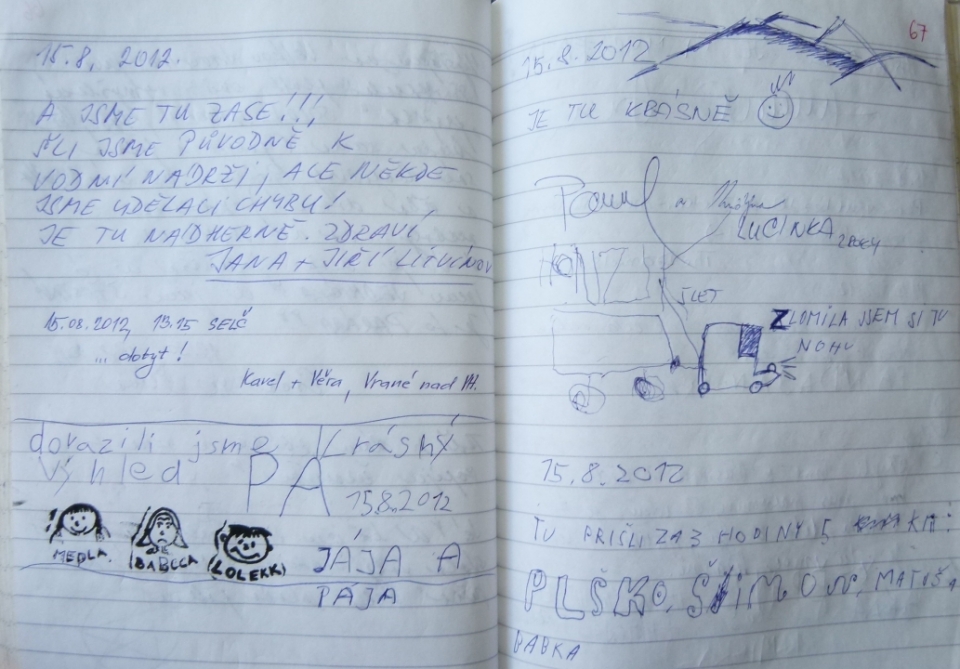 15.8. 2012.
A JSME TU ZASE!!!
ŠLI JSME PŮVODNĚ K
VODNÍ NÁDRŽI, ALE NĚKDE
JSME UDĚLALI CHYBU!
JE TU NÁDHERNĚ. ZDRAVÍ
JANA + JIŘÍ LITVÍNOV
15.08.2012, 13.15 SELČ
... dobyt!
Karel + Věra, Vrané nad Vlt.
dorazili jsme Krásný
výhled PA
15.8.2012
MEDLA.
BABCCA
(LOLEKK)
JÁJA A
PÁJA
67
15.8.2012
JE TU KRÁSNĚ
Pavel a
LUCINKA 2ROKY
HONZ
5LET
ZLOMILA JSEM SI TU
NOHU
15.8.2012
TU PŘIŠLI ZA 3 HODINY 5 KM:
PLŠKO, ŠIMON, MATUŠ,
BABKA